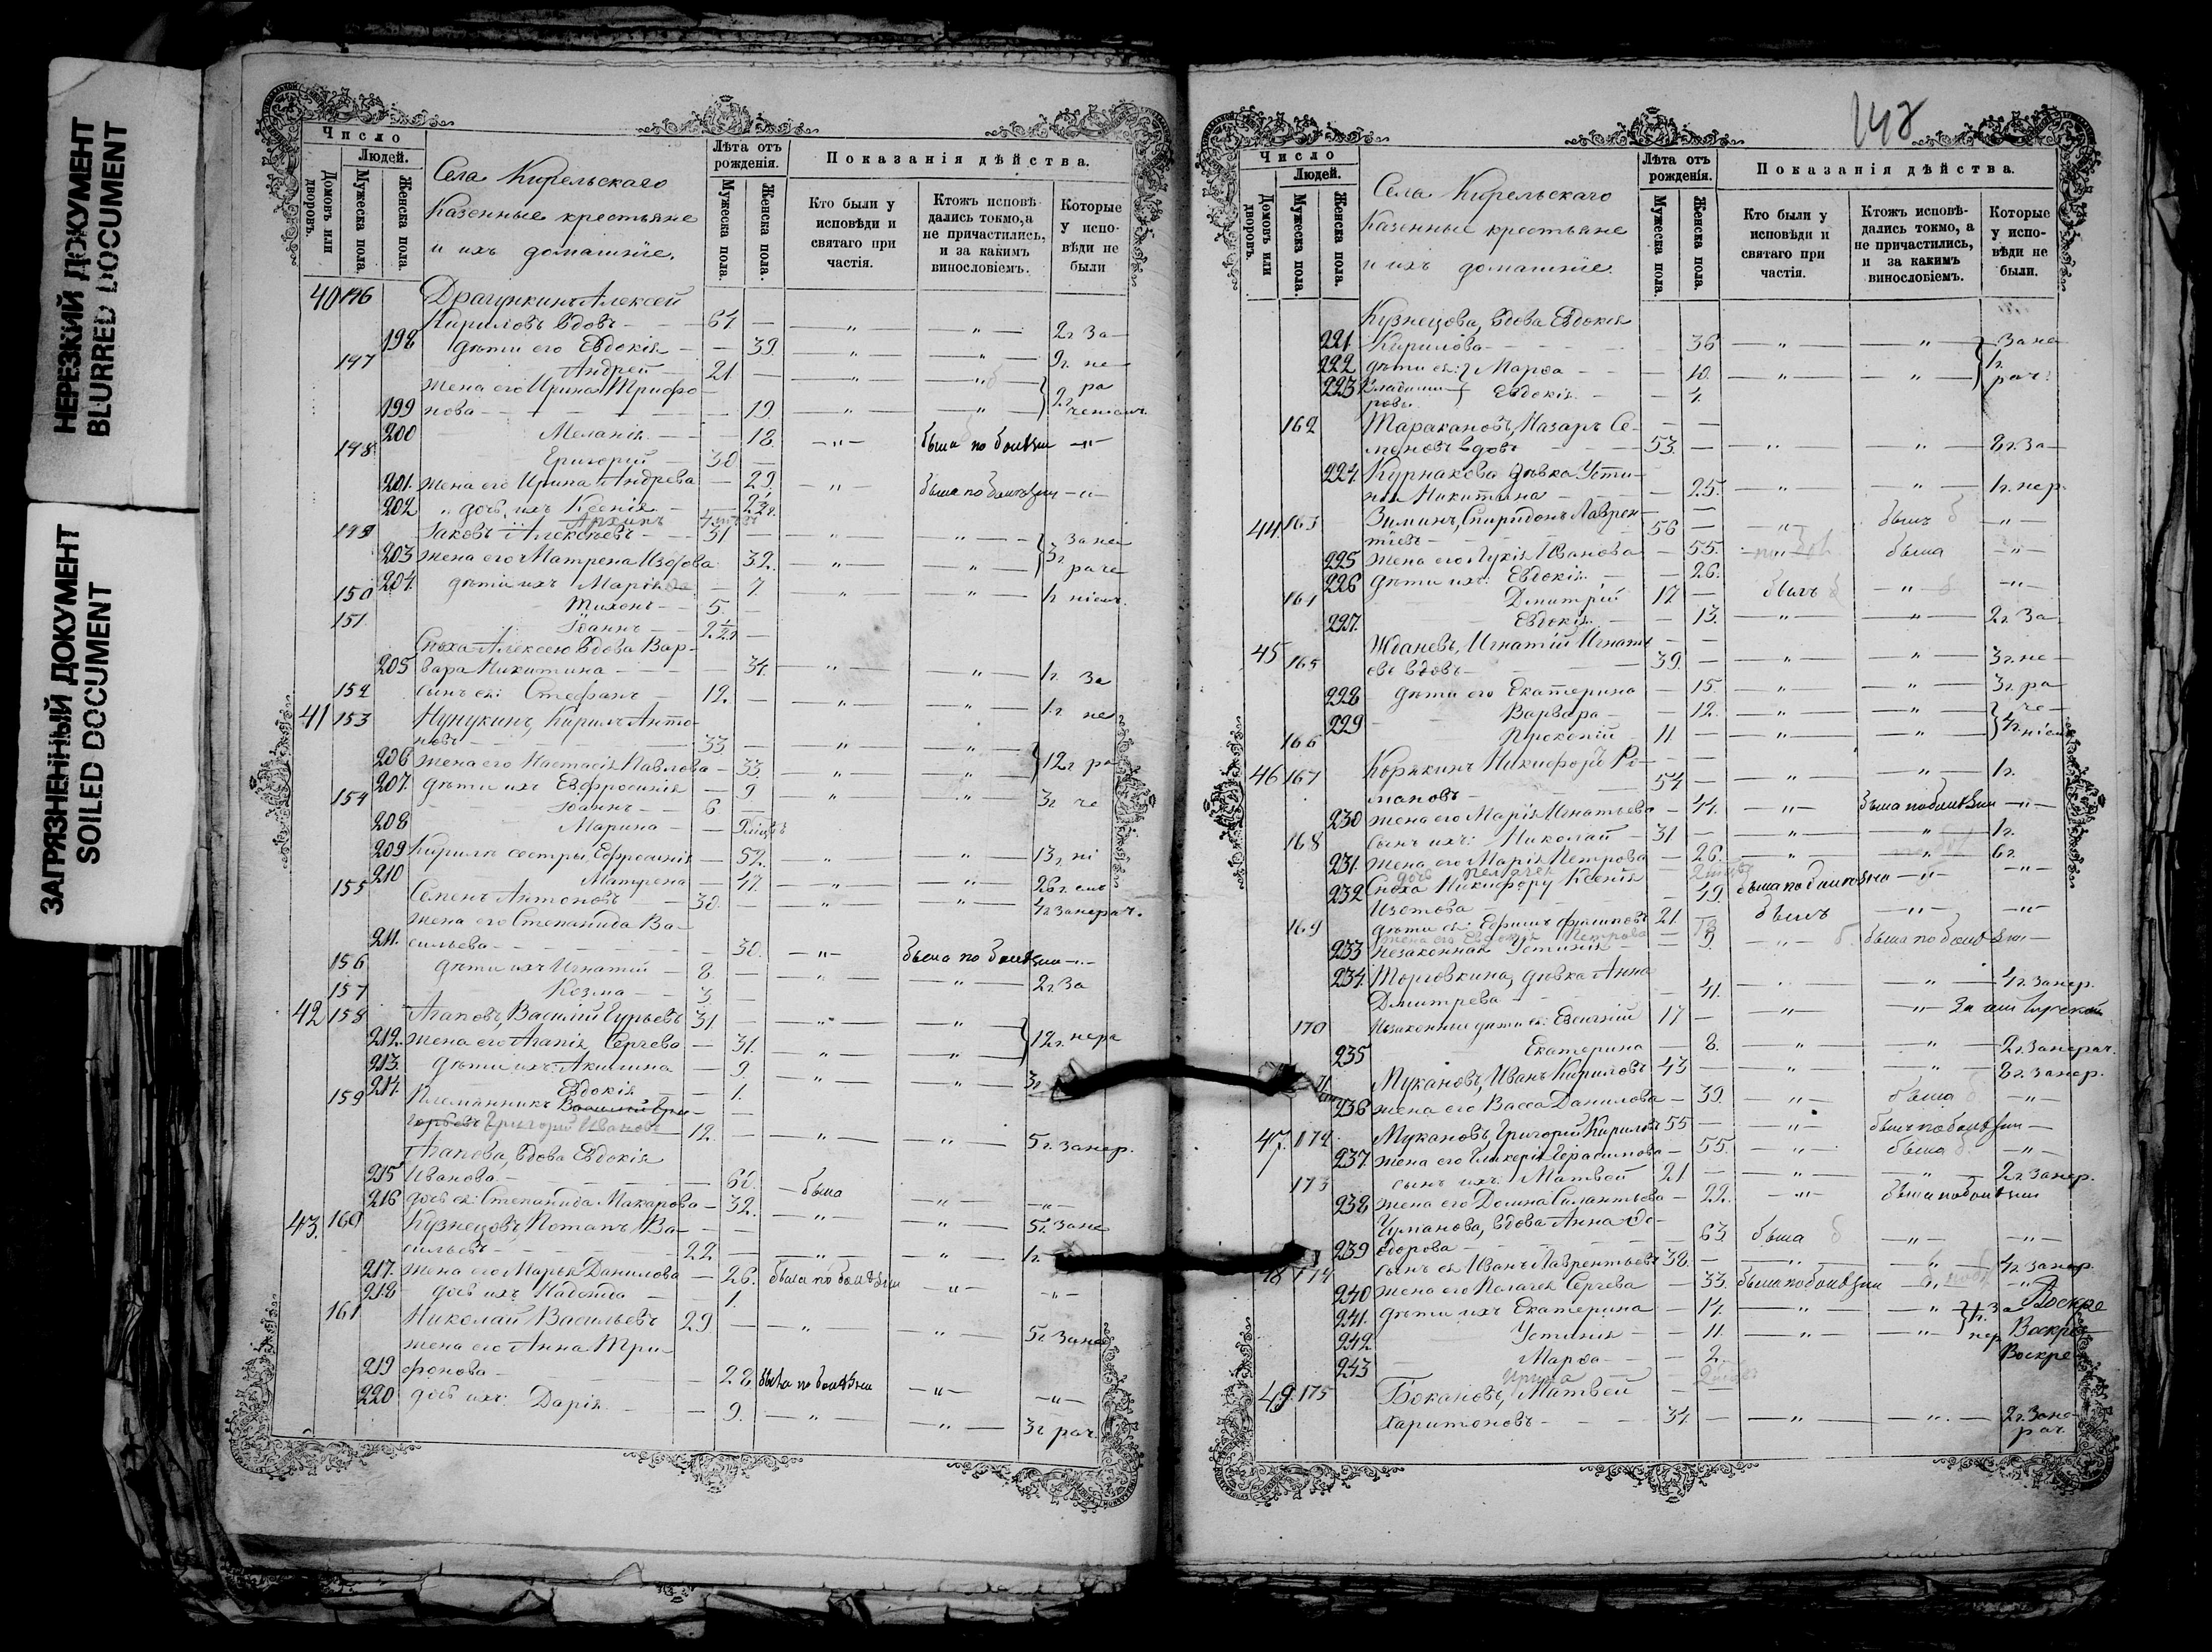 НЕРЕЗКИЙ ДОКУМЕНТ
BLURRED DOCUMENT
ЗАГРЯЗНЕННЫЙ ДОКУМЕНТ
SOILED DOCUMENT
Число
Домовъ или дворовъ.
Людей.
Мужеска пола.
Женска пола.
Села Кирельскаго
Казенные крестьяне
и ихъ домашніе.
Лѣта отъ рожденія.
Мужеска пола.
Женска пола.
Показанія дѣйства.
Кто были у исповѣди и святаго при частія.
Ктожъ исповѣ- дались токмо, а не причастились, и за какимъ винословіемъ.
Которые у испо- вѣди не были
40 146 Драгункинъ Алексей
Кириловъ вдовъ 64 — " — " — 2 г. За
198 дѣти его Евдокія — 39. — " — " — 2 г. не
147 Андрей 21 — " — "
жена его Ирина Трифо-
199 нова — 19 — " — " — 2 г. ра ченіемъ
200 Меланія — 18. — " — была по болѣзни — " —
148 Григорій — 30 —
201 жена его Ирина Андрева — 29 — " — была по болѣзни — " —
202 дочь ихъ Ксенія
Архипъ
149 Іаковъ Алексѣевъ — 31 — " — " — За не
203 жена его Матрена Изотова — 32. — " — " — 3 г. раче
204 дѣти ихъ Марія — 7. — " — " — 1 г. ніемъ.
150 Тихонъ — 5. —
151 Іоаннъ — 2 1/2 —
Сноха Алексею вдова Вар-
205 вара Никитина — 34. — " — " — 1 г. За
152 сынъ ея: Стефанъ — 12. — " — " — 1 г. не
41 153 Нунукинъ, Кирилъ Анто-
новъ — 33 — " — "
206 жена его Настасія Павлова — 33. — " — " — 12 г. ра
207. дѣти ихъ Евфросинія — 9 — " — " — 3 г. че
154 Іоаннъ — 6 —
208 Марина —
209 Кирила сестры, Ефросинія — 52. — " — " — 13 г. ні
210 Матрена — 47. — " — " — 26 г. емъ
155 Семенъ Антоновъ — 30. — " — " — 4 г. За нерач.
жена его Степанида Ва-
211. сильева — 30. — " — была по болѣзни — " —
156 дѣти ихъ Игнатій — 8. — " — " — 2 г. За
157 Козма — 3. —
42 158 Агаповъ, Василій Гурьевъ 31 — " — "
212. жена его Агапія Сергеева — 31. — " — " — 12 г. нера
213. дѣти ихъ: Акилина — 9. — " — " — 3 г.
214. Евдокія — 1.
159 Племянникъ
Григорій Ивановъ 12. — " — " — 5 г. За нер.
Агапова, вдова Евдокія
215 Иванова — была — " — " —
216 дочь ея: Степанида Макарова — 32. — " — " — 5 г. За не
43. 160 Кузнецовъ, Потапъ Ва-
сильевъ — 22 — " — " — 1 г.
217. жена его Марья Данилова — 26. была по болѣзни — " — " —
218 дочь ихъ Надежда — 1.
161 Николай Васильевъ 29 — " — " — 5 г. За не
жена его Анна Три-
219 фонова — 28 была по болѣзни — " — " —
220 дочь ихъ: Дарія — 9. — " — " — 3 г. рач.
148
Число
Домовъ или дворовъ.
Людей.
Мужеска пола.
Женска пола.
Села Кирельскаго
Казенные крестьяне
и ихъ домашніе.
Лѣта отъ рожденія.
Мужеска пола.
Женска пола.
Показанія дѣйства.
Кто были у исповѣди и святаго при частія.
Ктожъ исповѣ- дались токмо, а не причастились, и за какимъ винословіемъ.
Которые у испо- вѣди не были.
Кузнецова, вдова Евдокія
221 Кирилова — 36 — " — " — За не
222 дѣти ея: Марѳа — 10. — " — " — 1 г. рач.
223 Евдокія — 4.
162 Таракановъ, Назаръ Се-
меновъ вдовъ 53. — " — " — 8 г. За
224. Курнакова дѣвка Усти-
нія Никитина — 25. — " — " — 1 г. нер.
44. 163 Зиминъ, Спиридонъ Лаврен-
тіевъ — 56 — " — былъ — " —
225 жена его Лукія Иванова — 55. была — " —
226 дѣти ихъ: Евдокія — 26.
164 Дмитрій 17 — былъ — " — " —
227. Евдокія — 13. — " — " — 2 г. За
45 165 Ждановъ, Игнатій Игнать-
евъ вдовъ — 39. — " — " — 3 г. не
228 дѣти его Екатерина — 15. — " — " — 3 г. ра
229 Варвара — 12. — " — " — че
166 Прокопій 11 — " — " — 4 г. ніемъ
46 167 Корякинъ Никифоръ Ро-
мановъ — 54 — " — " — 1 г.
230 жена его Марія Игнатьева — 44. — " — была по болѣзни — " —
168 сынъ ихъ: Николай 31 — " — " — 1 г.
231. жена его Марія Петрова — 26. — " — 6 г.
дочь Пелагея
232 Сноха Никифору Ксенія — 49. была по болѣзни — " — " —
Изотова
169 дѣти ея: Ефимъ Филиповъ 21. былъ — " — " —
жена его Евдокія Петрова
233 незаконная Устинія — 9. — " — была по болѣзни —
234. Торговкина, дѣвка Анна
Дмитрева — 41. — " — " — 4 г. За нер.
170 Незаконные дѣти ея: Евгеній 17 — " — "
235 Екатерина — 8. — " — " — 2 г. За нерач.
Мукановъ, Иванъ Кириловъ 43 — " — " — 8 г. За нер.
236 жена его Васса Данилова — 39. — " — была — " —
47. 172 Мукановъ, Григорій Кириловъ 55 — " — былъ по болѣзни —
237. жена его Гликерія Герасимова — 55. — " — была — " —
173 сынъ ихъ: Матвей 21 — " — " — 2 г. За нер.
238 жена его Домна Силантьева — 22. — " — была по болѣзни
Чуманова, вдова Анна Ѳе-
239 одорова — 63. была — " — " —
48 174 сынъ ея Иванъ Лаврентьевъ 38. — " — " — 4 г. За нер.
240 жена его Пелагея Сергева — 33. была по болѣзни — " —
241. дѣти ихъ Екатерина — 14. — " — " — За Воскре
242 Устинія — 11. — " — " — нер Воскре
243 Марѳа — 2. Воскре
Ирина
49. 175 Бокановъ, Матвей
Харитоновъ — 34. — " — " — 2 г. За не-
рач.